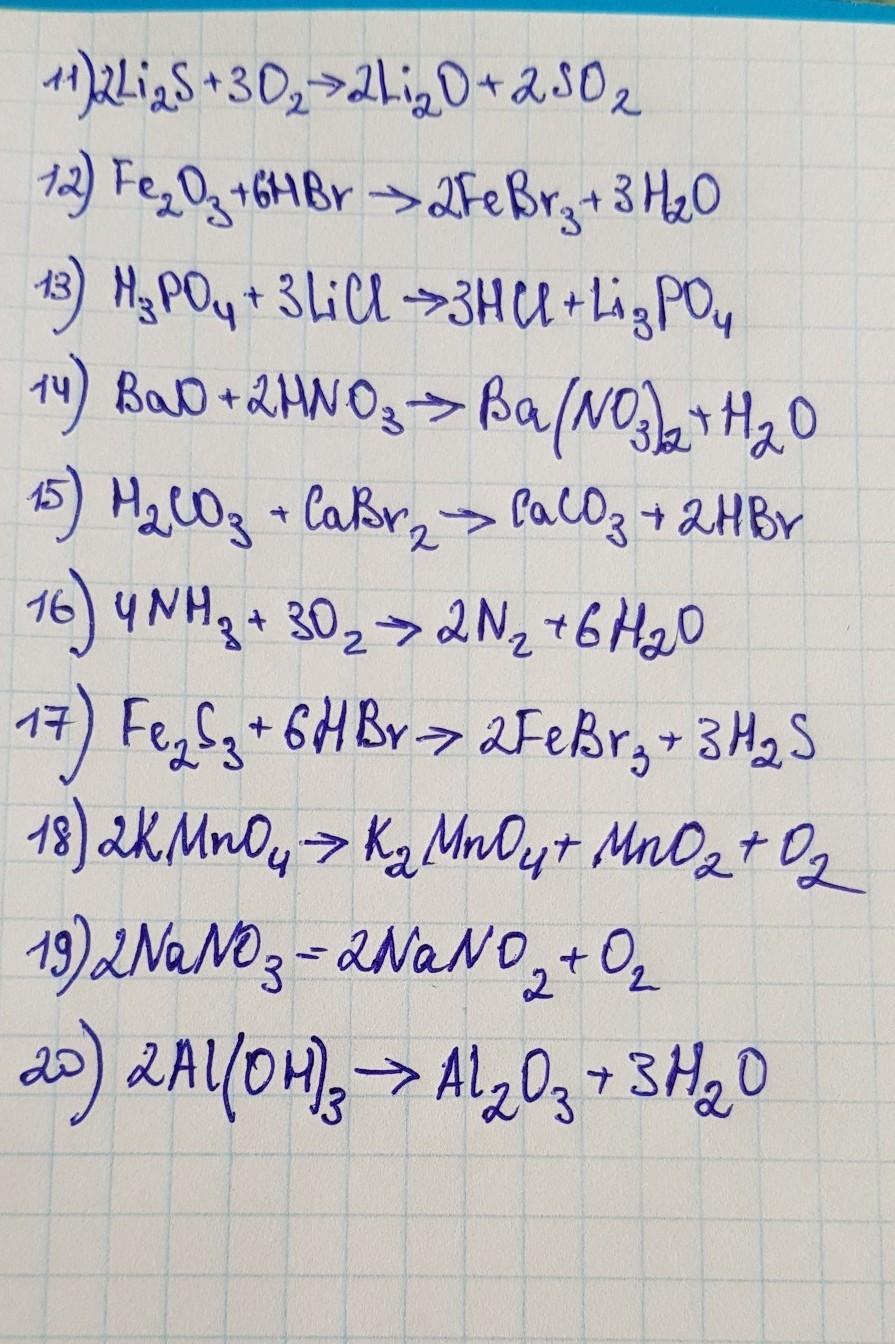 11) 2Li₂S + 3O₂ → 2Li₂O + 2SO₂
12) Fe₂O₃ + 6HBr → 2FeBr₃ + 3H₂O
13) H₃PO₄ + 3LiCl → 3HCl + Li₃PO₄
14) BaO + 2HNO₃ → Ba(NO₃)₂ + H₂O
15) H₂CO₃ + CaBr₂ → CaCO₃ + 2HBr
16) 4NH₃ + 3O₂ → 2N₂ + 6H₂O
17) Fe₂S₃ + 6HBr → 2FeBr₃ + 3H₂S
18) 2KMnO₄ → K₂MnO₄ + MnO₂ + O₂
19) 2NaNO₃ = 2NaNO₂ + O₂
20) 2Al(OH)₃ → Al₂O₃ + 3H₂O